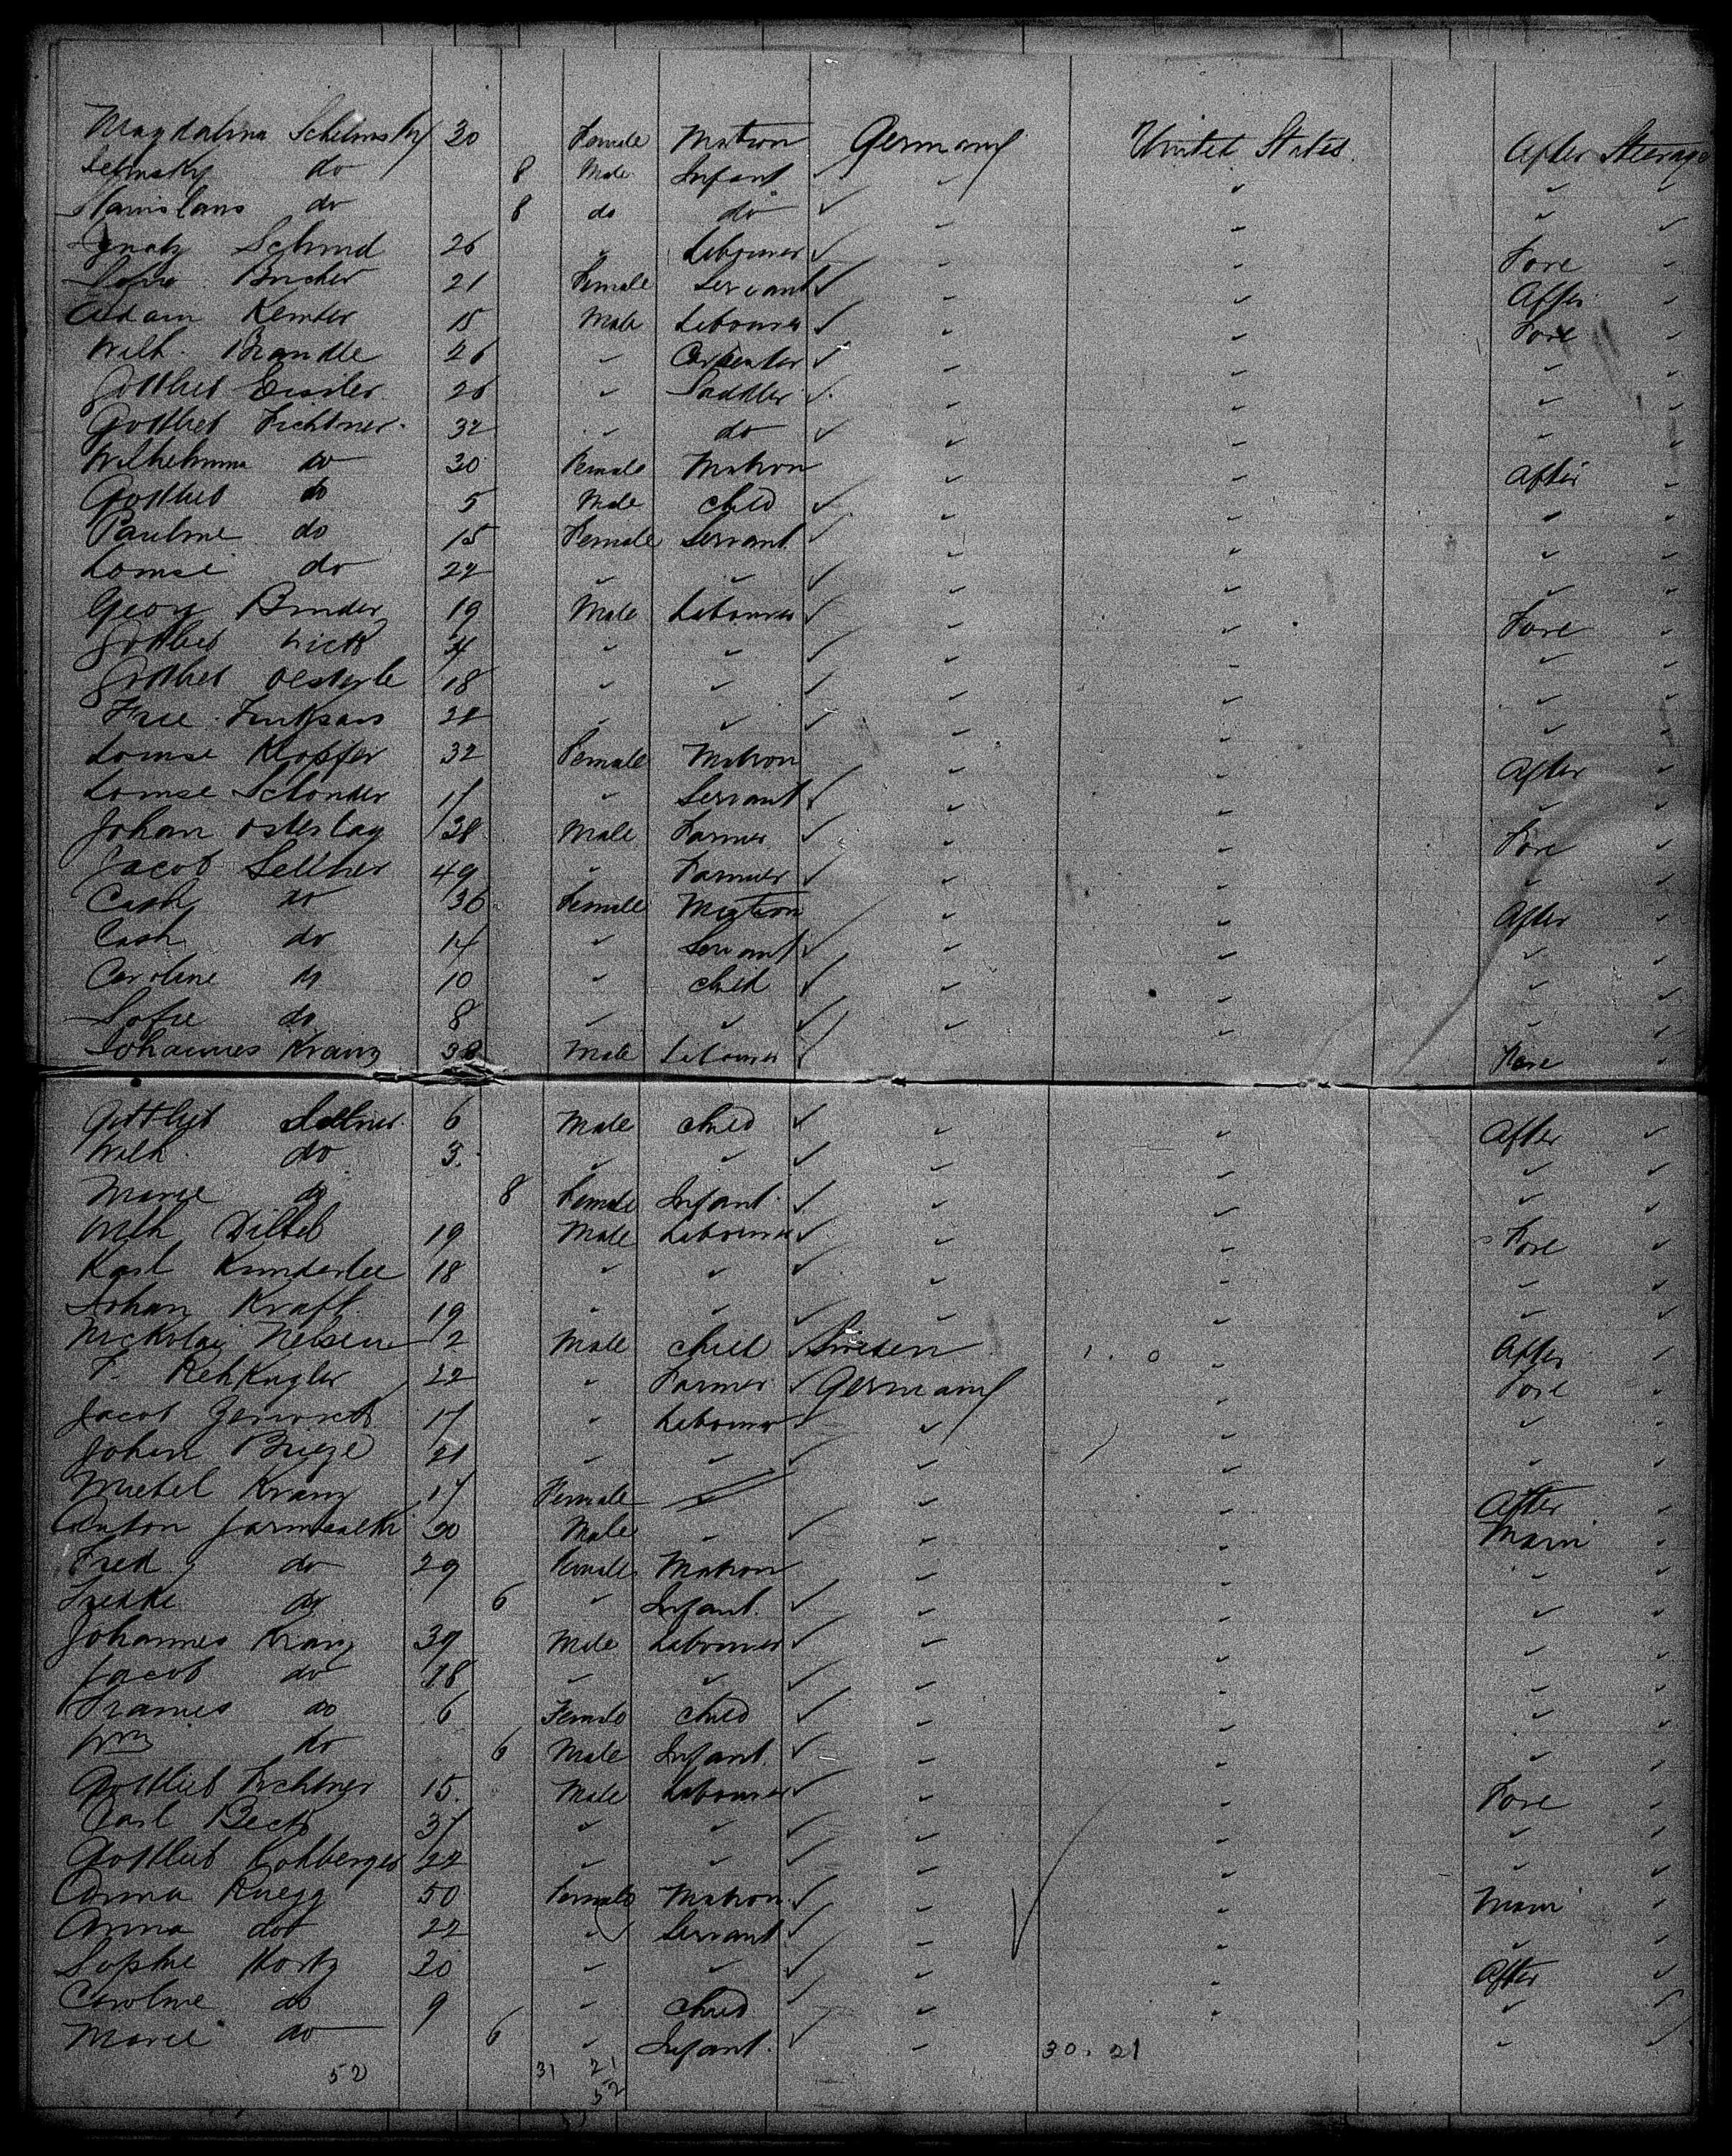 Magdalina Schelinsky 30 Female Matron Germany United States After Steerage
do 8 Male Infant ✓ ✓ ✓ ✓ ✓
Stanislaus do 8 do do ✓ ✓ ✓ ✓ ✓
Ignatz Schmid 26 ✓ Labourer ✓ ✓ ✓ Fore ✓
Bucher 21 Female Servant ✓ ✓ ✓ After ✓
Adam Kemter 15 Male Labourer ✓ ✓ ✓ Fore ✓
Wilh. Brandle 26 ✓ Carpenter ✓ ✓ ✓ ✓ ✓
Gottlieb Eissler 26 ✓ Saddler ✓ ✓ ✓ ✓ ✓
Gottlieb Fichtner 32 ✓ do ✓ ✓ ✓ ✓ ✓
Wilhelmina do 30 Female Matron ✓ ✓ After ✓
Gottlieb do 5 Male child ✓ ✓ ✓ ✓ ✓
Pauline do 15 Female Servant ✓ ✓ ✓ ✓ ✓
Louise do 22 ✓ ✓ ✓ ✓ ✓ ✓ ✓
Georg Binder 19 Male Labourer ✓ ✓ ✓ Fore ✓
Gottlieb ✓ ✓ ✓ ✓ ✓ ✓ ✓
Gottlieb Oesterle 18 ✓ ✓ ✓ ✓ ✓ ✓ ✓
✓ ✓ ✓ ✓ ✓ ✓ ✓
Louise Klopfer 32 Female Matron ✓ ✓ After ✓
Louise Schonder 17 ✓ Servant ✓ ✓ ✓ ✓ ✓
Johan Ostertag 38 Male Farmer ✓ ✓ ✓ Fore ✓
Jacob Sellner 49 ✓ Farmer ✓ ✓ ✓ ✓ ✓
Cath do 36 Female Matron ✓ ✓ After ✓
Cath do 14 ✓ Servant ✓ ✓ ✓ ✓ ✓
Caroline do 10 ✓ child ✓ ✓ ✓ ✓ ✓
Sofie do 8 ✓ ✓ ✓ ✓ ✓ ✓ ✓
Johannes Kranz 38 Male Labourer ✓ Fore ✓
Gottlieb Sellner 6 Male child ✓ ✓ ✓ After ✓
Wilh. do 3 ✓ ✓ ✓ ✓ ✓ ✓ ✓
Marie do 8 Female Infant ✓ ✓ ✓ ✓ ✓
Wilh Dittel 19 Male Labourer ✓ ✓ ✓ Fore ✓
Karl Kunderlee 18 ✓ ✓ ✓ ✓ ✓ ✓ ✓
Johan Kraft 19 ✓ ✓ ✓ ✓ ✓ ✓ ✓
Nickolai Nelsen 2 Male child ✓ Sweden ✓ After ✓
F. Rehkugler 22 ✓ Farmer ✓ Germany Fore ✓
Jacob 17 ✓ Labourer ✓ ✓ ✓ ✓ ✓
Johan Briege 21 ✓ ✓ ✓ ✓ ✓ ✓ ✓
Kranz 17 Female ✓ ✓ ✓ After ✓
Anton 30 Male ✓ ✓ ✓ ✓ Main ✓
Fred do 29 Female Matron ✓ ✓ ✓ ✓
do 6 ✓ Infant ✓ ✓ ✓ ✓ ✓
Johannes Kranz 39 Male Labourer ✓ ✓ ✓ ✓ ✓
Jacob do 18 ✓ ✓ ✓ ✓ ✓ ✓ ✓
do 6 Female child ✓ ✓ ✓ ✓ ✓
Wm do 6 Male Infant ✓ ✓ ✓ ✓ ✓
Gottlieb Fichtner 15 Male Labourer ✓ ✓ ✓ Fore ✓
Carl Beck 37 ✓ ✓ ✓ ✓ ✓ ✓ ✓
Gottlieb Kohlberger 22 ✓ ✓ ✓ ✓ ✓ ✓ ✓
Anna Ruegg 50 Female Matron ✓ ✓ ✓ Main ✓
Anna do 22 ✓ Servant ✓ ✓ ✓ ✓ ✓
Sophie Kortz 20 ✓ ✓ ✓ ✓ ✓ After ✓
Caroline do 9 ✓ child ✓ ✓ ✓ ✓ ✓
Marie do 6 ✓ Infant ✓ ✓ ✓ ✓
30. 21
52 31 21
52